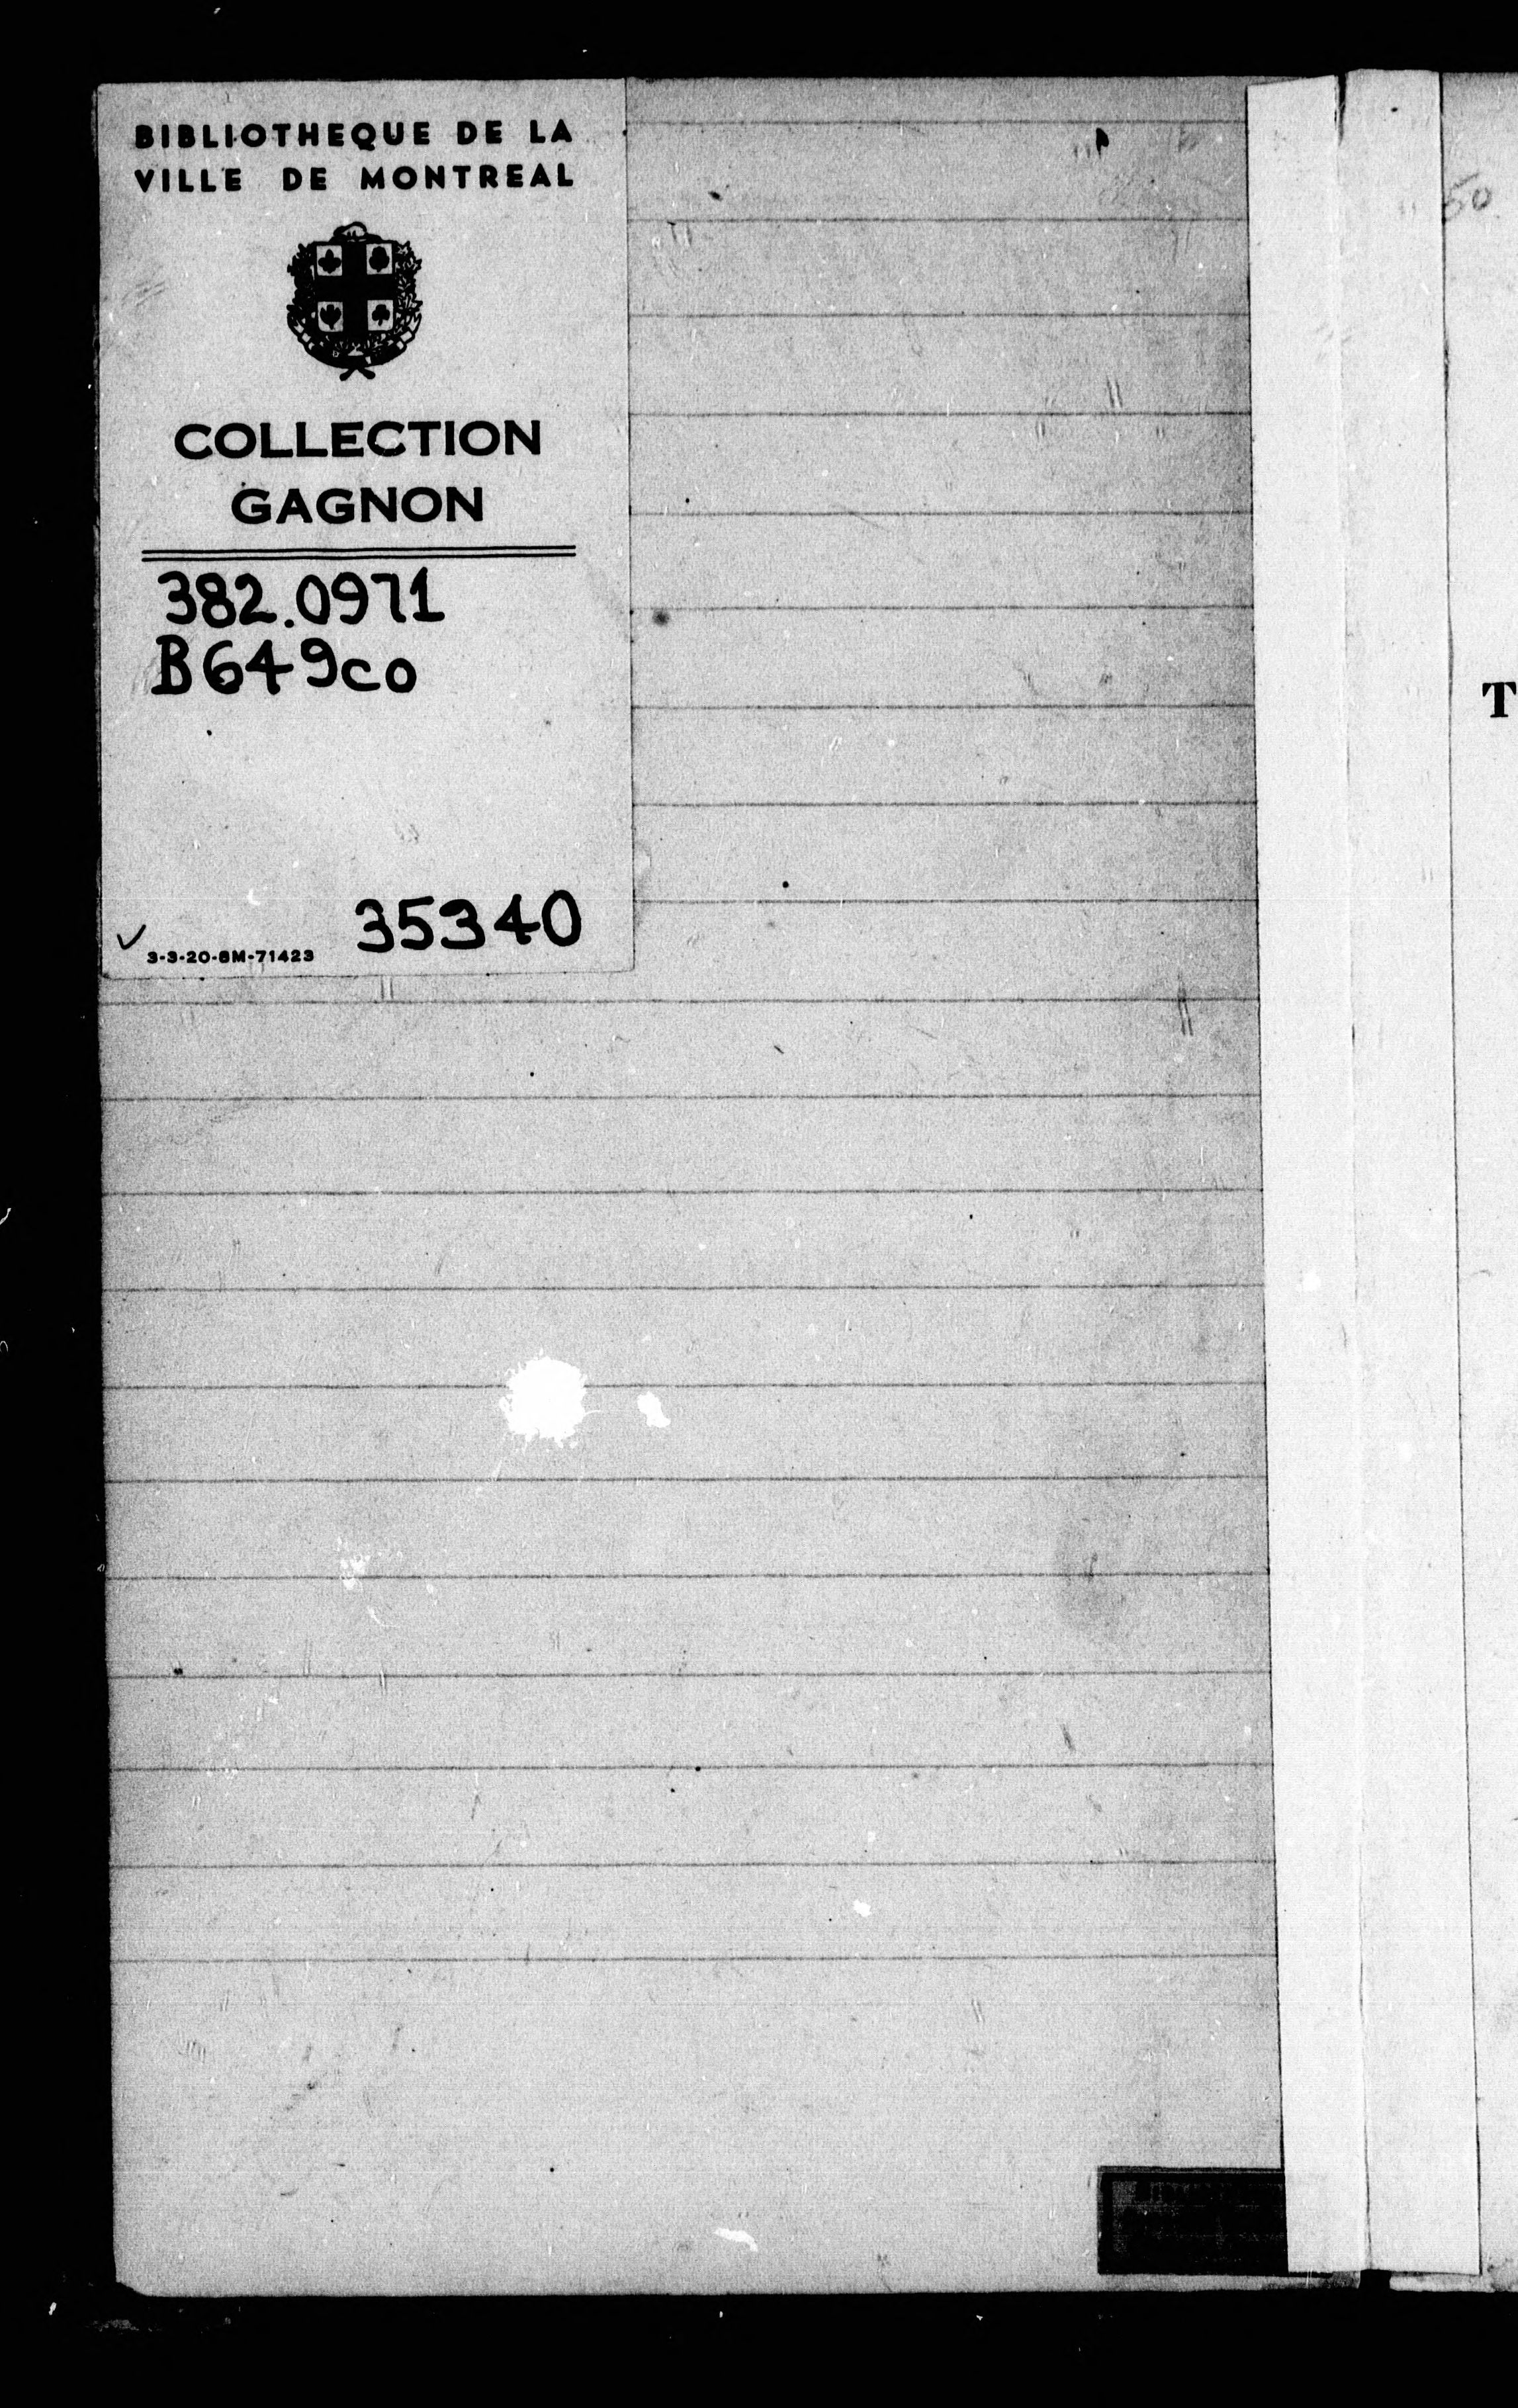 BIBLIOTHEQUE DE LA
VILLE DE MONTREAL
COLLECTION
GAGNON
382.0971
B649co
35340
3-3-20-6M-71423
50
T